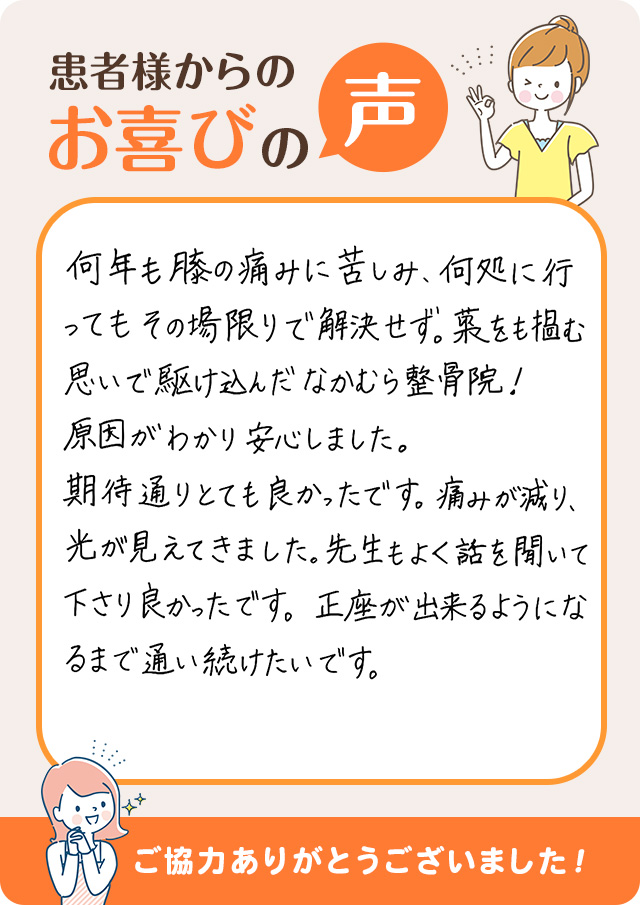 患者様からの
お喜びの声
何年も膝の痛みに苦しみ、何処に行
ってもその場限りで解決せず。藁をも掴む
思いで駆け込んだなかむら整骨院！
原因がわかり安心しました。
期待通りとても良かったです。痛みが減り、
光が見えてきました。先生もよく話を聞いて
下さり良かったです。正座が出来るようにな
るまで通い続けたいです。
ご協力ありがとうございました！